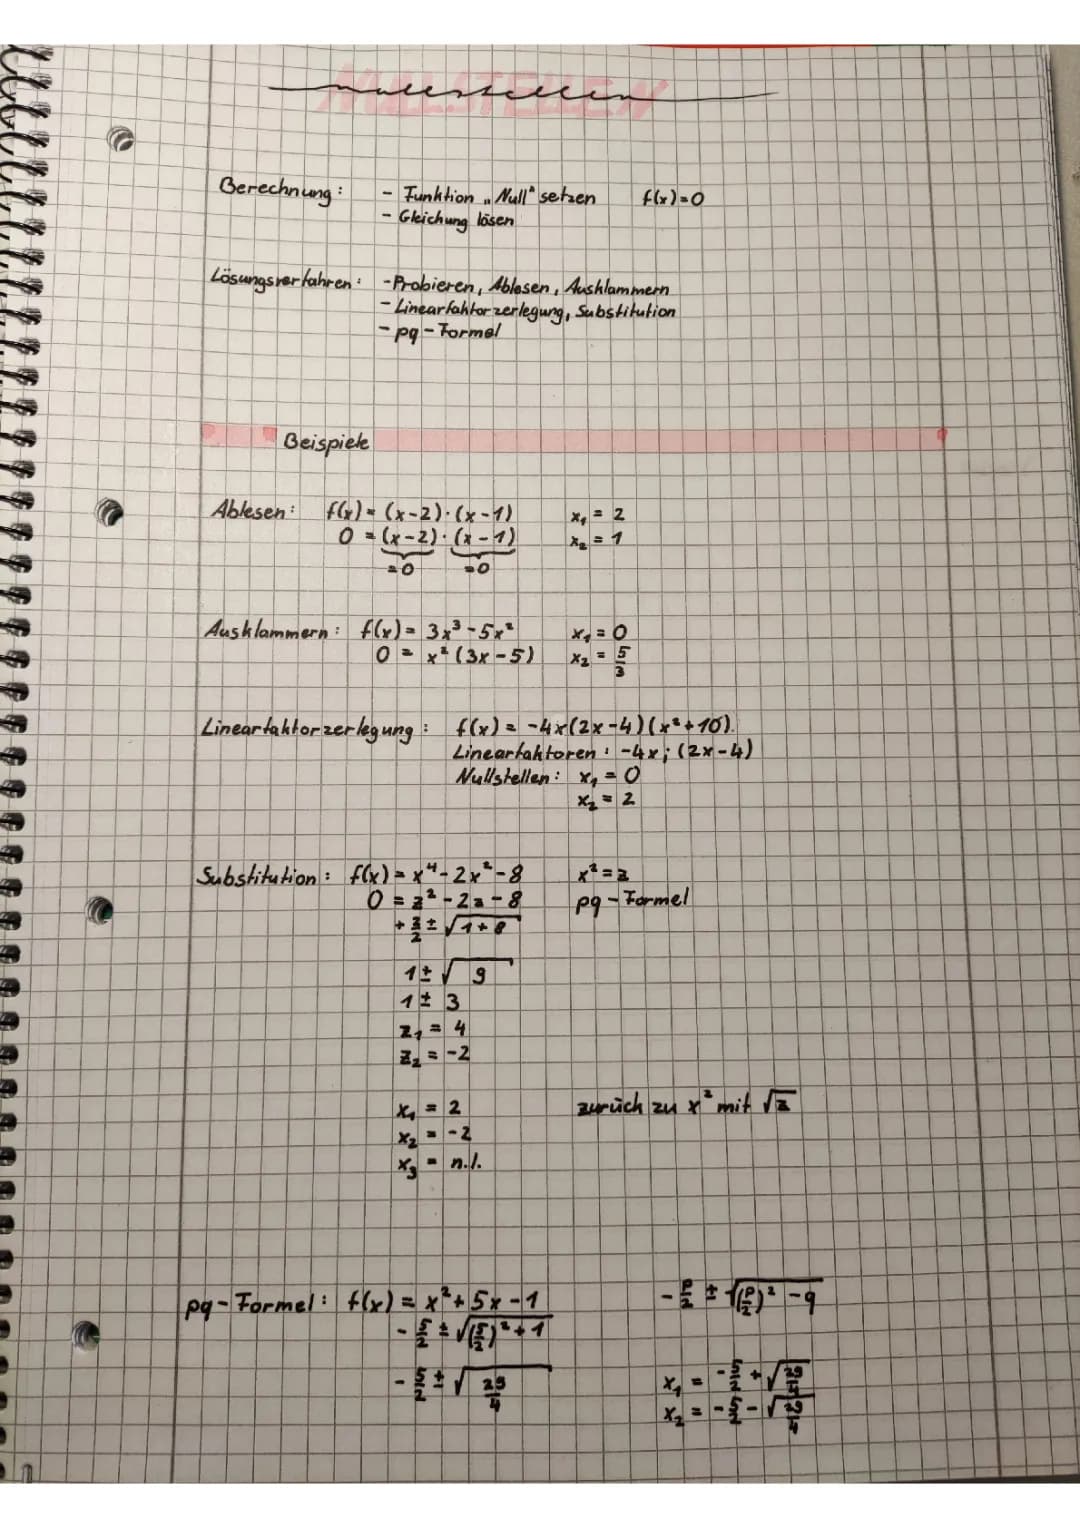 NULLSTELLEN
nullstellen
Berechnung: - Funktion „Null“ setzen f(x)=0
- Gleichung lösen
Lösungsverfahren: - Probieren, Ablesen, Ausklammern
- Linearfaktorzerlegung, Substitution
- pq-Formel
Beispiele
Ablesen: f(x) = (x-2)·(x-1) x₁ = 2
0 = (x-2)·(x-1) x₂ = 1
=0 =0
Ausklammern: f(x) = 3x³-5x² x₁ = 0
0 = x²(3x-5) x₂ = 5/3
Linearfaktorzerlegung: f(x) = -4x(2x-4)(x²+10).
Linearfaktoren: -4x; (2x-4)
Nullstellen: x₁ = 0
x₂ = 2
Substitution: f(x) = x⁴-2x²-8 x²=z
0 = z²-2z-8 pq-Formel
+ 2/2 ± √(1+8)
1 ± √9
1 ± 3
z₁ = 4
z₂ = -2
x₁ = 2 zurück zu x² mit √z
x₂ = -2
x₃ = n.l.
pq-Formel: f(x) = x²+5x-1 -p/2 ± √((p/2)²-q)
-5/2 ± √((5/2)²+1)
-5/2 ± √(29/4) x₁ = -5/2 + √(29/4)
x₂ = -5/2 - √(29/4)